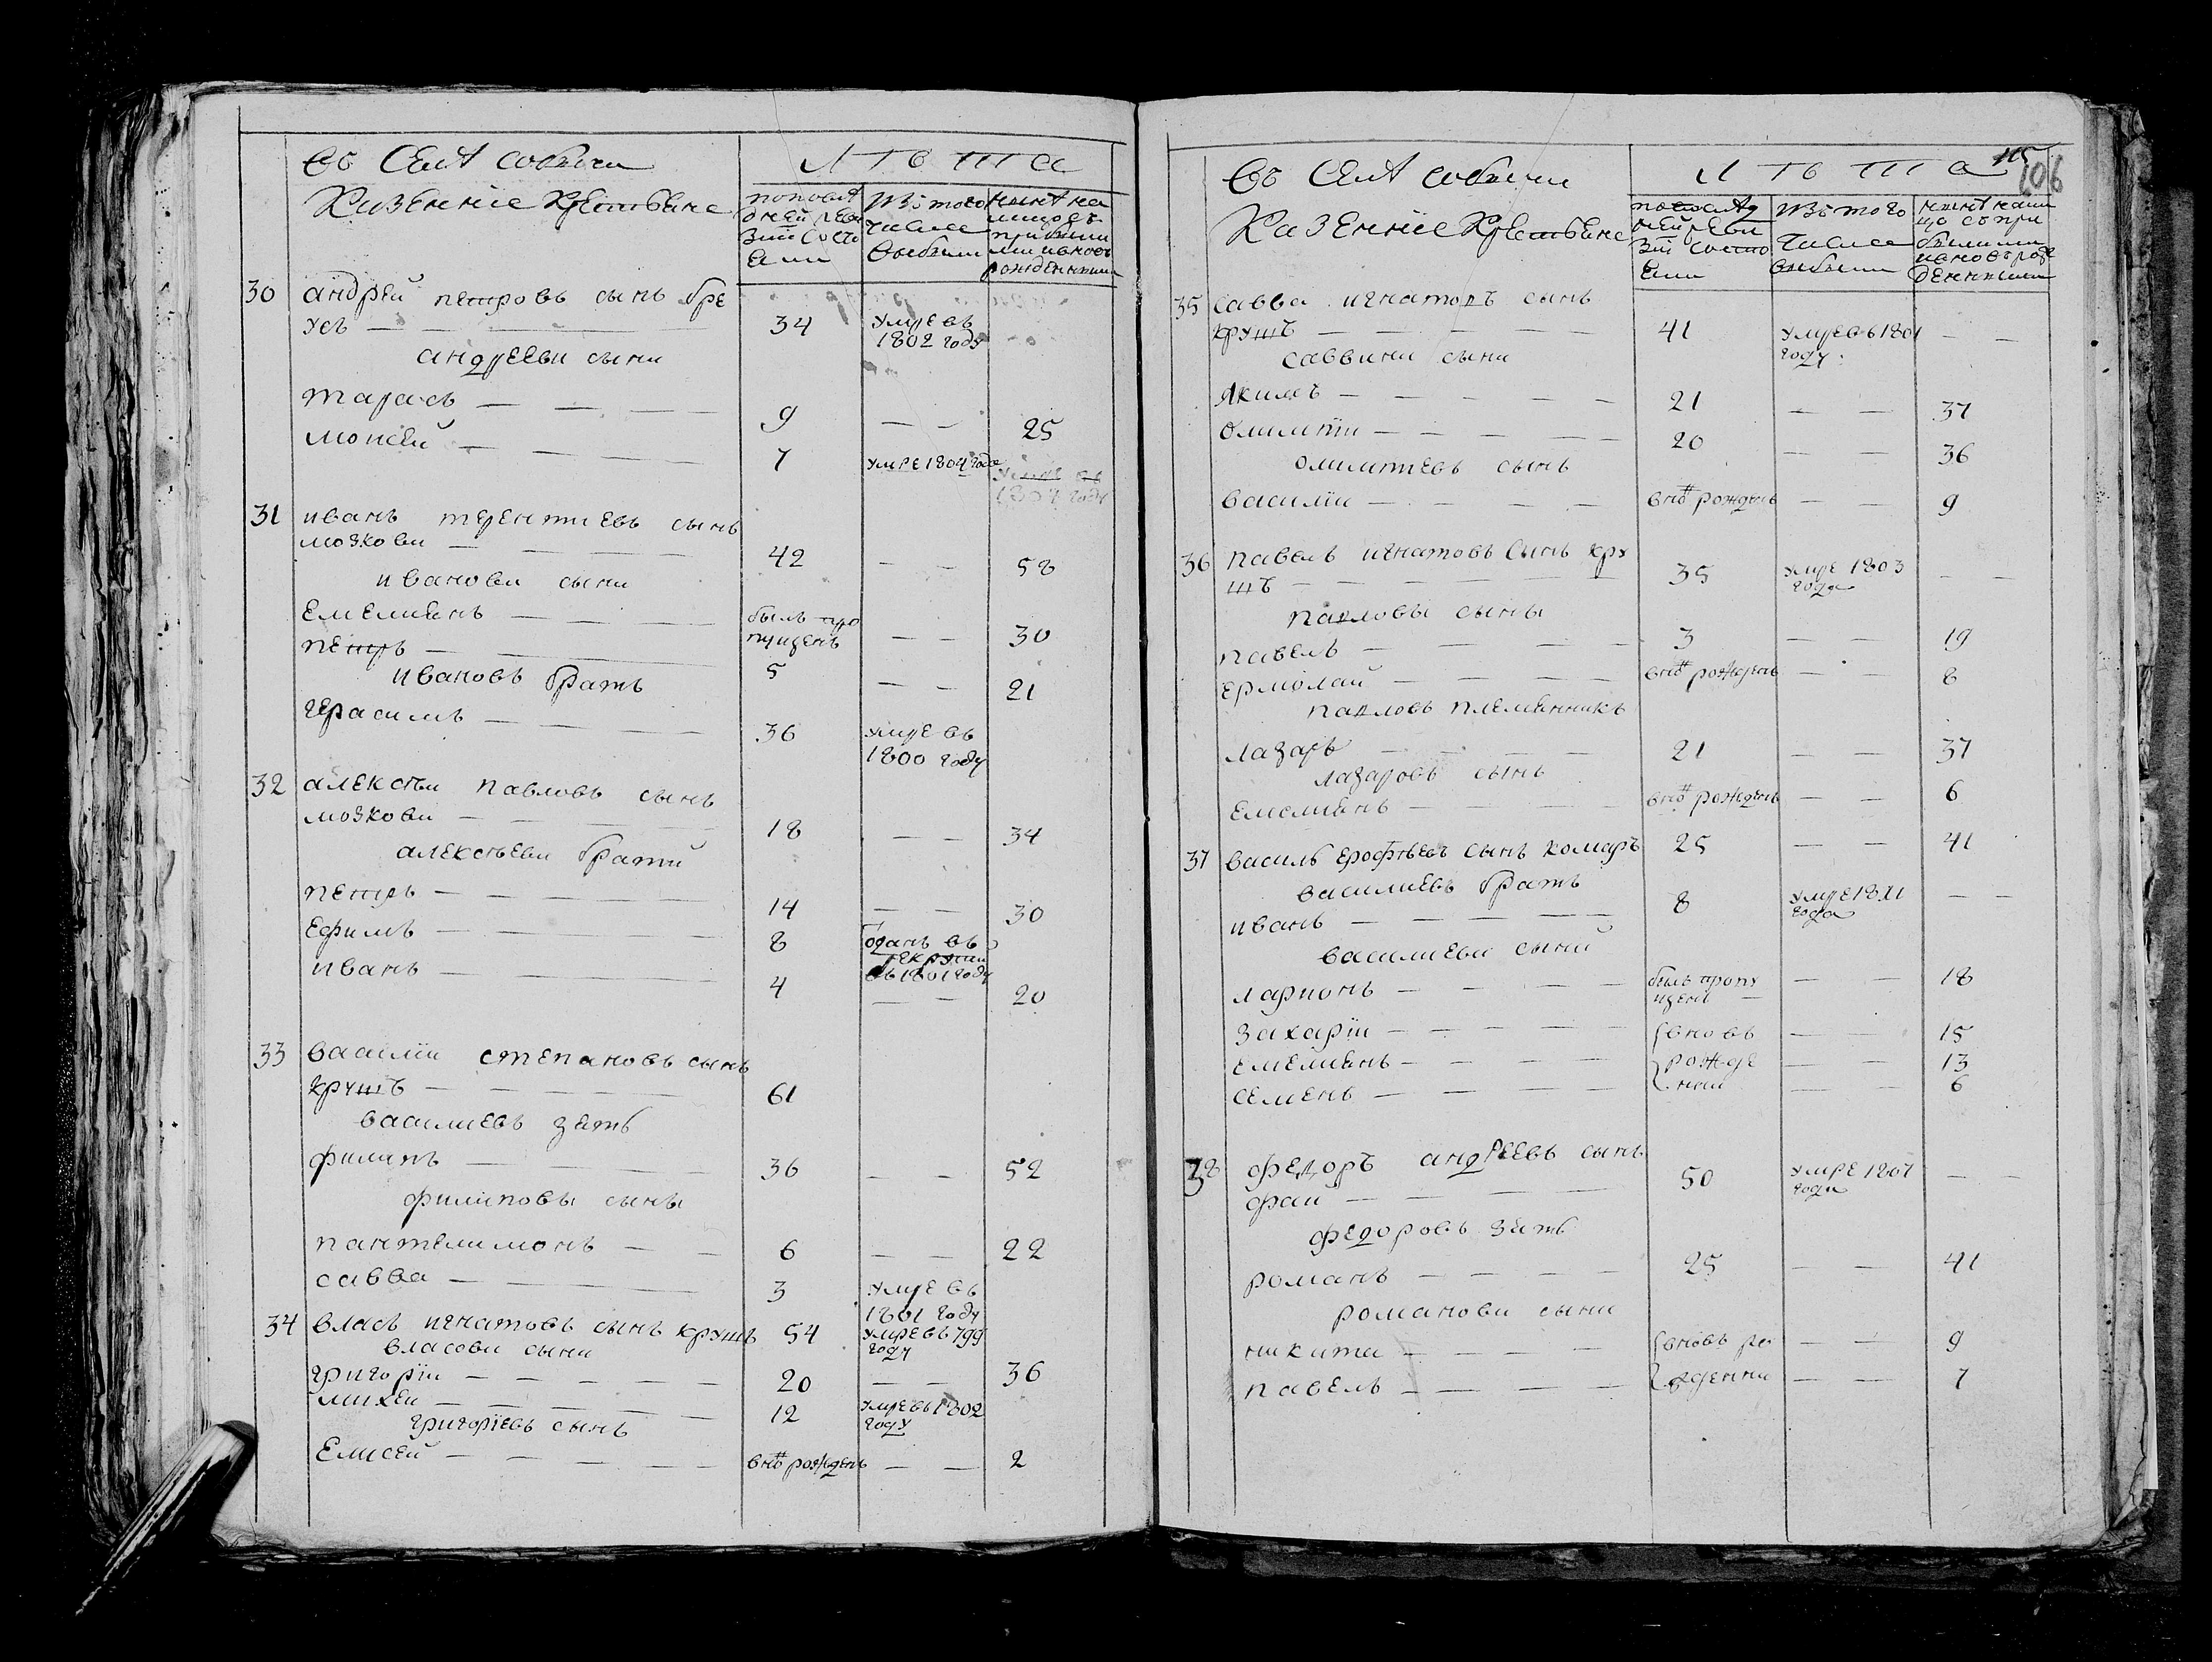 въ селѣ собычи
казеннiе крестьяне
Л Ѣ Т А
по послѣ
дней реви
зiи состо
яли
изъ того
числа
выбыли
нынѣ на
лицо съ
прибыли
ми и вновь
рожденними
30 андрей петровъ сынъ бре
усъ — — 34 умре въ
1802 году
андрееви сыни
тарасъ — — — — 9 — — 25
моисей — — — — 7 умре 1804 года умре въ
1804 году
31 иванъ терентиевъ сынъ
мозкови — — — — 42 — — 58
иванови сыни
емелиянъ — — — былъ про
пущенъ — — 30
петръ — — 5 — — 21
ивановъ братъ
герасимъ — — — 36 умре въ
1800 году
32 алексѣи павловъ сынъ
мозкови — — — — 18 — — 34
алексѣеви братй
петръ — — — — — 14 — — 30
ефимъ — — — — — 8 одан въ
рекрути
въ 1801 году
иванъ — — — — 4 — — 20
33 василiи степановъ сынъ
крушъ — — — — 61
василиевъ зять
филипъ — — — — 36 — — 52
филиповы сыны
пантелимонъ — — 6 — — 22
савва — — — 3 умре въ
1801 году
34 власъ игнатовъ сынъ крушъ 54 умре въ 799
году
власови сыни
григорiи — — — — — 20 — — 36
михеи — — — — — 12 умре въ 1802
году
григорiевъ сынъ
елисей — — — — — внѣ рожденъ — — 2
115
106
въ селѣ собычи
казеннiе крестьяне
Л Ѣ Т А
по послѣд
ней реви
зiй состо
яли
изъ того
числа
выбыли
нынѣ нали
цо съ при
былими
и вновъ рож
денними
35 савва игнатовъ сынъ
крушъ — — — — — 41 умре въ 1801
году — —
саввини сыни
якимъ — — — — — 21 — — 37
олимпiи — — — — — 20 — — 36
олимпиевъ сынъ
василiи — — — — внѣ рожденъ — — 9
36 павелъ игнатовъ сынъ кру
шъ — — — — — 35 умре 1803
года — —
павловы сыны
павелъ — — — — — 3 — — 19
ермолай — — — — внѣ рожденъ — — 8
павловъ племянникъ
лазарь — — — — 21 — — 37
лазаровъ сынъ
емелиянъ — — — — внѣ рожденъ — — 6
37 василь ерофѣевъ сынъ комаръ 25 — — 41
василиевъ братъ
иванъ — — — — — 8 умре 1811
года — —
василиеви сыний
ларионъ — — — — былъ пропу
щенъ — — — 18
захарiи — — — — — вновъ — — 15
емелиянъ — — — — рожде — — 13
семенъ — — — — нии — — 6
38 федоръ андреевъ сынъ
фаи — — — — 50 умре 1807
года — —
федоровъ зять
романъ — — — — 25 — — 41
романови сыни
никита — — — — вновъ ро — — 9
павелъ — — — — жденни — — 7